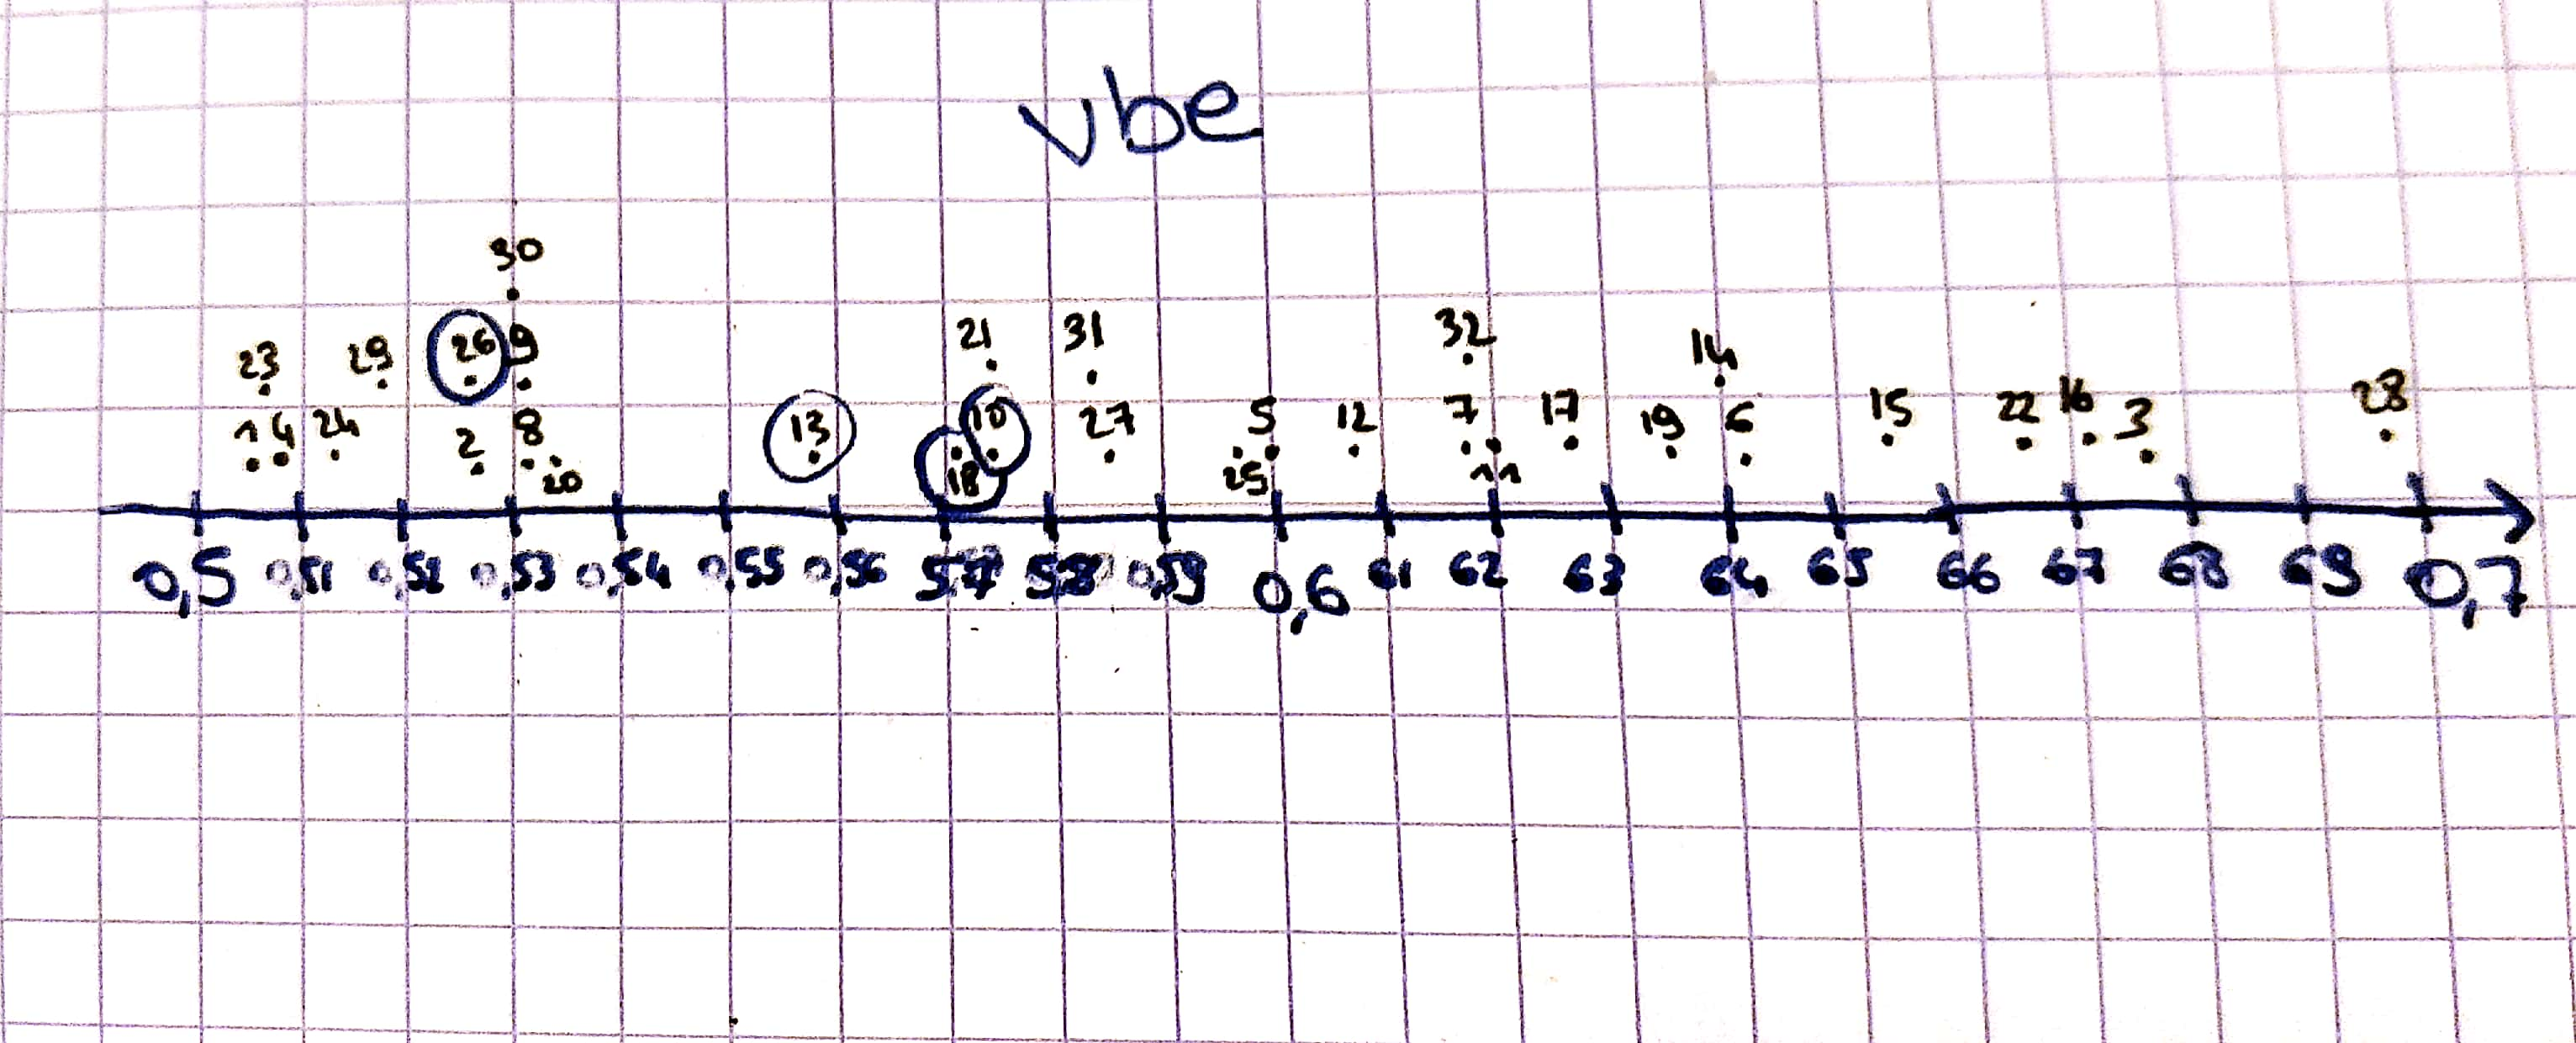 vbe
30
23 29 26 9 21 31 32 14
1 4 24 2 8 13 10 27 5 12 7 17 19 6 15 22 16 3 28
20 18 25 11
0,5 0,51 0,52 0,53 0,54 0,55 0,56 57 58 0,59 0,6 61 62 63 64 65 66 67 68 69 0,7